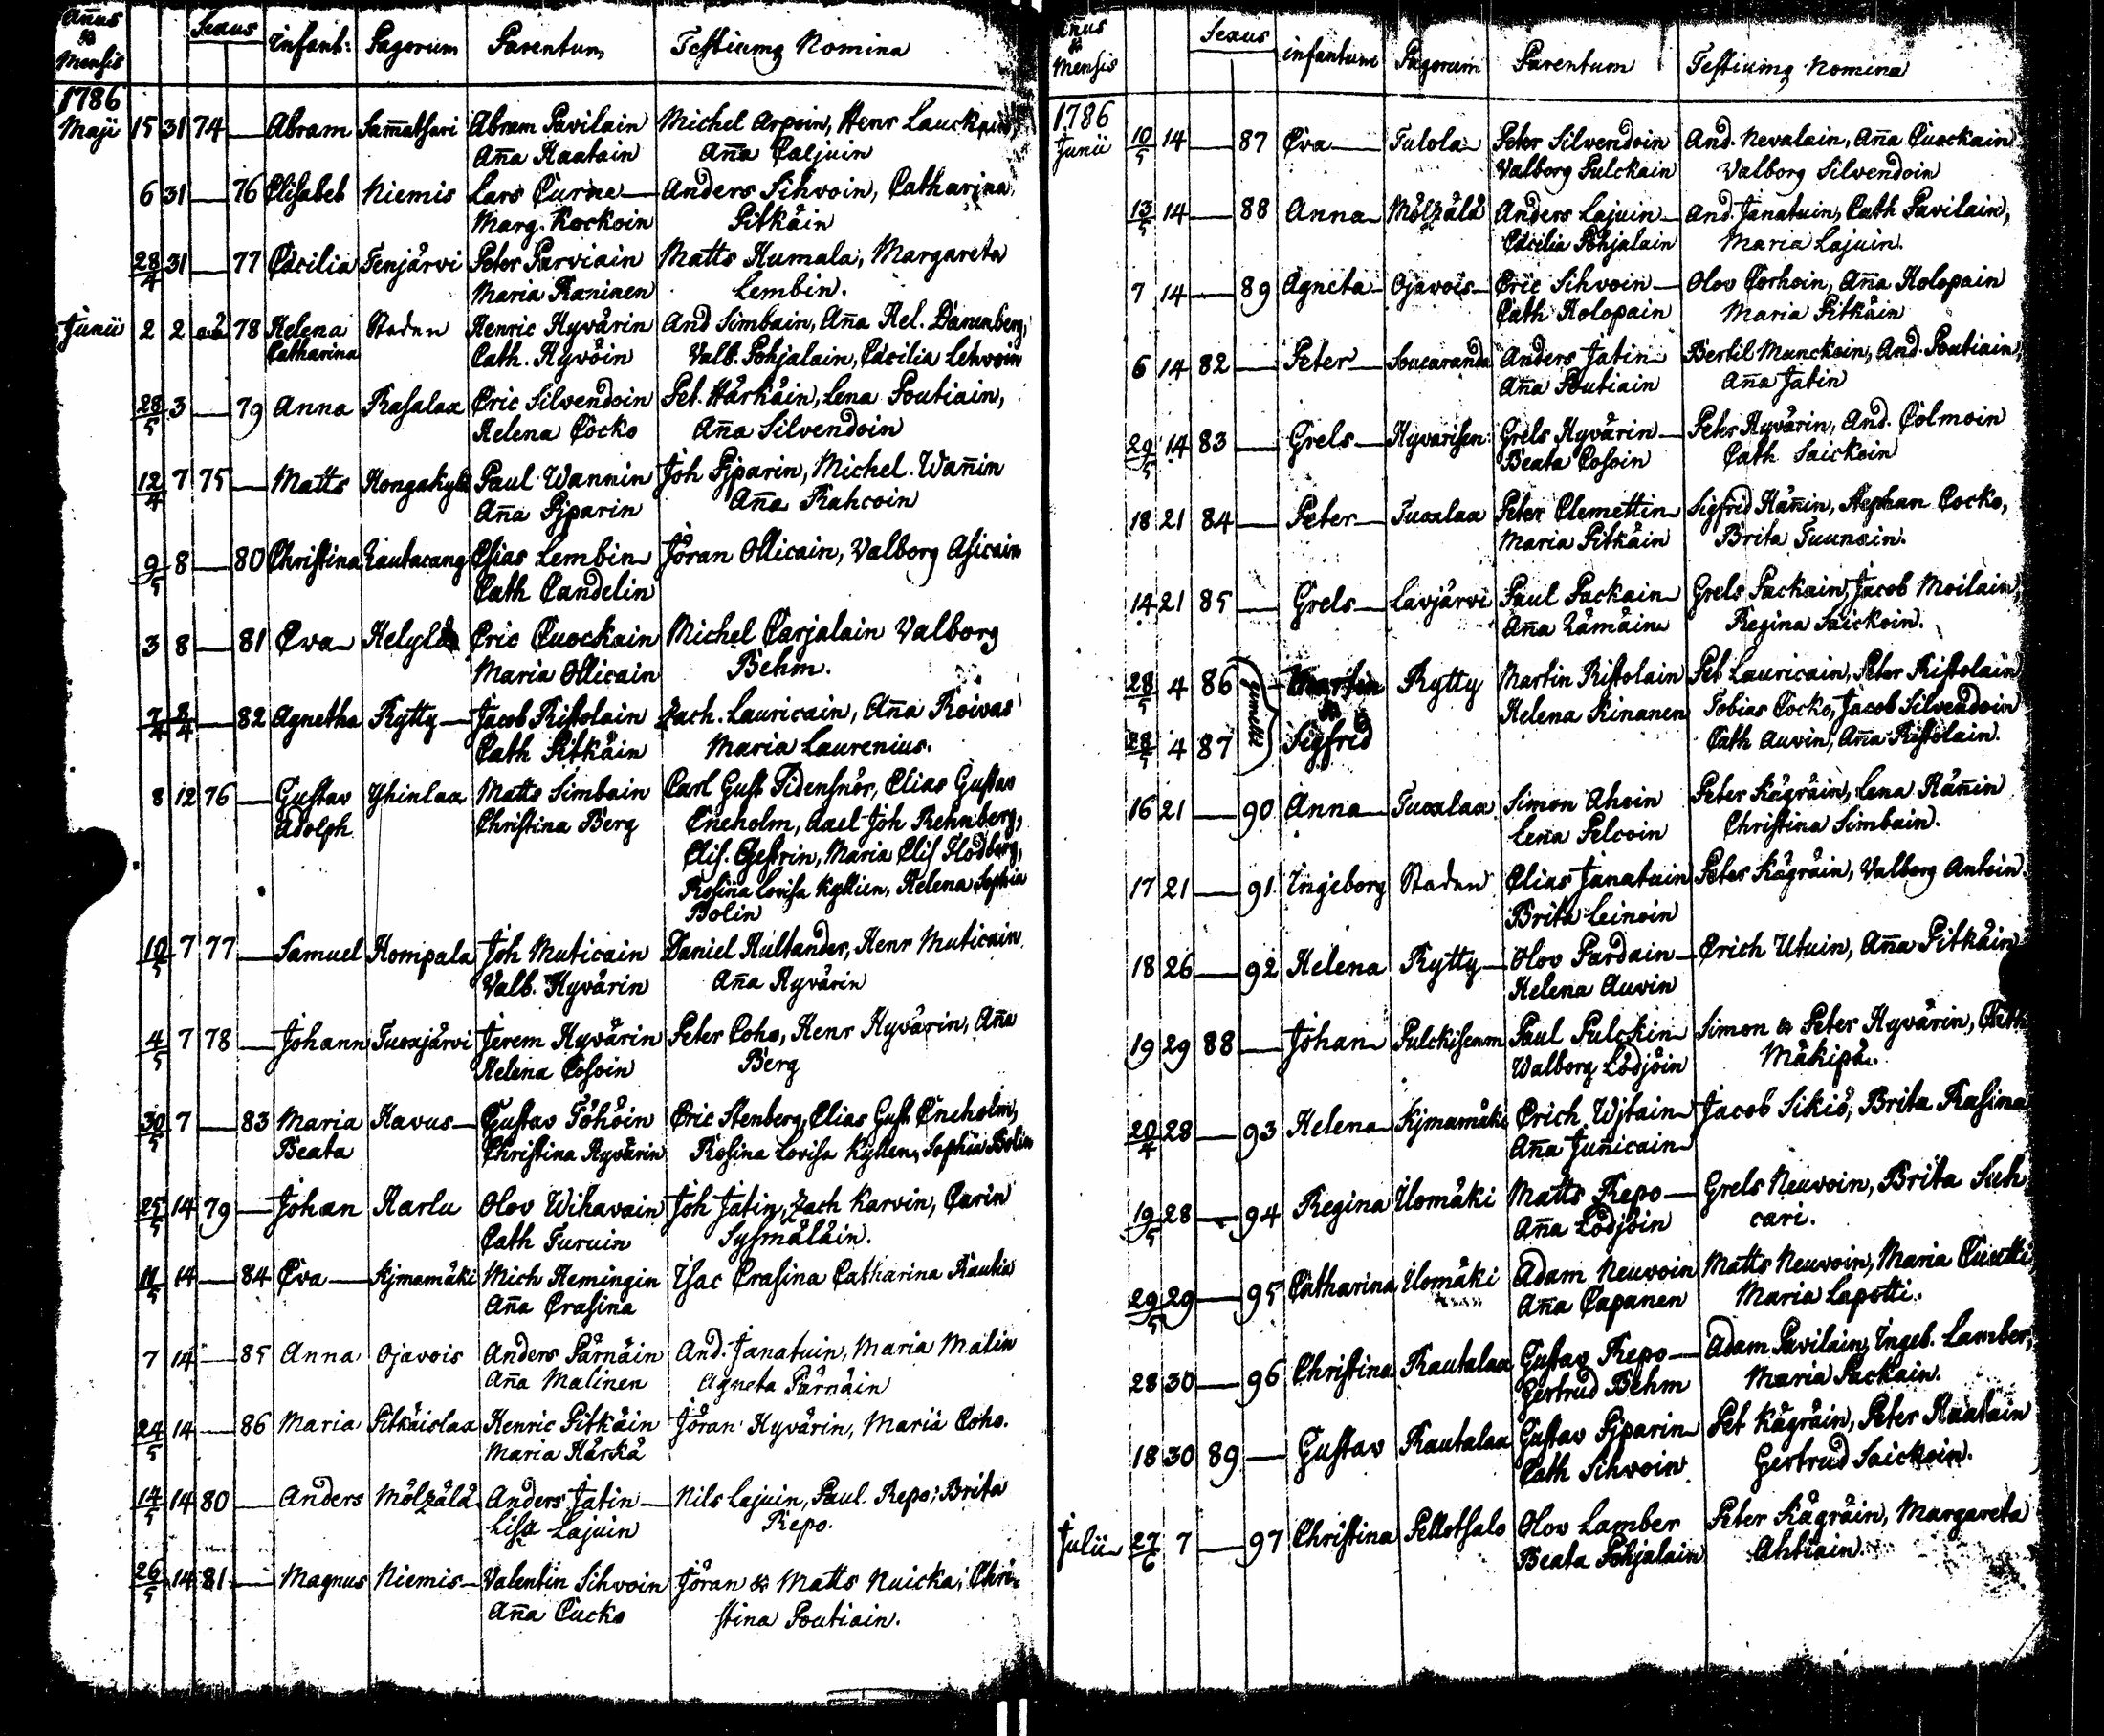 Añus & Mensis Sexus Infant: Pagorum Parentum Testiumq Nomina
1786
Maji 15 31 74 — Abram Sam̃atsari Abram Pavilain Michel Arpoin, Henr Lauckain,
Aña Haatain Aña Carjuin
6 31 — 76 Elisabet Niemis Lars Curna — Anders Sihvoin, Catharina
Marg. Kockoin Pitkäin
28/4 31 — 77 Cæcilia Tenjärvi Peter Parviain Matts Humala, Margareta
Maria Raninen Lembin.
Junii 2 2 78 Helena Staden Henric Hyvärin And Simbain, Aña Hel. Danenberg,
Catharina Cath. Hyvöin Valb. Pohjalain, Cæcilia Lehvoin
28/5 3 — 79 Anna Rasalax Eric Silvendoin Pet. Härkäin, Lena Poutiain,
Helena Cocko Aña Silvendoin
12/4 7 75 — Matts Hongakylä Paul Wannin Joh Pjparin, Michel Wañin
Aña Pjparin Aña Rahcoin
9/5 8 — 80 Christina Lautacang Elias Lembin Jöran Ollicain, Valborg Asicain
Cath Candelin
3 8 — 81 Eva Helylä Eric Cuockain Michel Carjalain Valborg
Maria Ollicain Behm.
7/4 8/4 — 82 Agnetha Rytty — Jacob Ristolain Zach. Lauricain, Aña Roivas
Cath Pitkäin Maria Laurenius.
8 12 76 — Gustav Yhinlax Matts Simbain Carl Gust Tidensnör, Elias Gustav
Adolph Christina Berg Eneholm, Axel Joh Rehnberg,
Elis. Gestrin, Maria Elis Flodberg,
Rosina Lovisa Kyllien, Helena Sophia
Bolin
10/5 7 77 — Samuel Hompala Joh Muticain Daniel Hultander, Henr Muticain
Valb. Hyvärin Aña Hyvärin
4/5 7 78 — Johann Tuoxjärvi Jerem Hyvärin Peter Coho, Henr Hyvärin, Aña
Helena Cosoin Berg
30/5 7 — 83 Maria Havus — Gustav Töhöin Eric Stenberg, Elias Gust Eneholm,
Beata Christina Hyvärin Rosina Lovisa Kyllen, Sophia Bolin
25/5 14 79 — Johan Harlu Olov Wihavain Joh Jatin, Zach Karvin, Carin
Cath Turuin Sysmäläin.
11/5 14 — 84 Eva — Kjmamäki Mich Hemingin Isac Erasina Catharina Rautia
Aña Erasina
7 14 — 85 Anna Ojavois Anders Pärnäin And. Janatuin, Maria Malin
Aña Malinen Agneta Pärnäin
24/5 14 — 86 Maria Pitkäislax Henric Pitkäin Jöran Hyvärin, Maria Coho.
Maria Härkä
14/5 14 80 — Anders Mölzälä Anders Jatin — Nils Lajuin, Paul. Repo; Brita
Lisa Lajuin Repo.
26/5 14 81 — Magnus Niemis — Valentin Sihvoin Jöran & Matts Nuicka, Chri-
Aña Cucko stina Poutiain.
Añus & Mensis Sexus infantum Pagorum Parentum Testiumq Nomina
1786
Junii 10/5 14 — 87 Eva — Tulola Peter Silvendoin And. Nevalain, Aña Cuockain
Valborg Pulckain Valborg Silvendoin
13/5 14 — 88 Anna Mölzälä Anders Lajuin — And. Janatuin, Cath Pavilain,
Cæcilia Pohjalain Maria Lajuin.
7 14 — 89 Agneta — Ojavois — Eric Sihvoin — Olov Corhoin, Aña Holopain
Cath Holopain Maria Pitkäin
6 14 82 — Peter — Soucaranda Anders Jatin Bertil Munckoin, And. Poutiain,
Aña Poutiain Aña Jatin
29/5 14 83 — Grels — Hyvarisen Grels Hyvärin — Peter Hyvärin, And. Colmoin
Beata Cosoin Cath Saickoin
18 21 84 — Peter — Tuoxlax Peter Clemettin Sigfrid Häñin, Stephan Cocko,
Maria Pitkäin Brita Tuunain.
14 21 85 — Grels — Lavjärvi Paul Packain Grels Packain, Jacob Moilain,
Aña Lämäin Regina Saickoin.
28/5 4 86 gemelli Martin Rytty Martin Ristolain Pet Lauricain, Peter Ristolain
& Helena Kinanen Tobias Cocko, Jacob Silvendoin
28/5 4 87 Sigfrid Cath Auvin, Aña Ristolain.
16 21 — 90 Anna — Tuoxlax Simon Ahoin Peter Kägräin, Lena Häñin
Lena Pelcoin Christina Simbain.
17 21 — 91 Ingeborg Staden Elias Janatuin Peter Kägräin, Valborg Antoin.
Brita Leinoin
18 26 — 92 Helena Rytty — Olov Pardain — Erich Utuin, Aña Pitkäin
Helena Auvin
19 29 88 — Johan Pulckisenm Paul Pulckin Simon & Peter Hyvärin, Cath
Walborg Lödjöin Mäkipä.
20/4 28 — 93 Helena Kjmamäki Erich Wjtain Jacob Sikiö, Brita Rasina
Aña Juñicain
19/5 28 — 94 Regina Ilomäki Matts Repo — Grels Neuvoin, Brita Suh
Aña Lödjöin cari.
29/5 29 — 95 Catharina Ilomäki Adam Neuvoin Matts Neuvoin, Maria Cuotti
Aña Capanen Maria Lapotti.
28 30 — 96 Christina Rautalax Gustav Repo — Adam Pavilain, Ingeb. Lamber,
Gertrud Behm Maria Packain.
18 30 89 — Gustav Rautalax Gustav Pjparin Pet Kägräin, Peter Haatain
Cath Sihvoin Gertrud Saickoin.
Julii 27/6 7 — 97 Christina Pellotsalo Olov Lamber Peter Kägräin, Margareta
Beata Pohjalain Ahtiain.